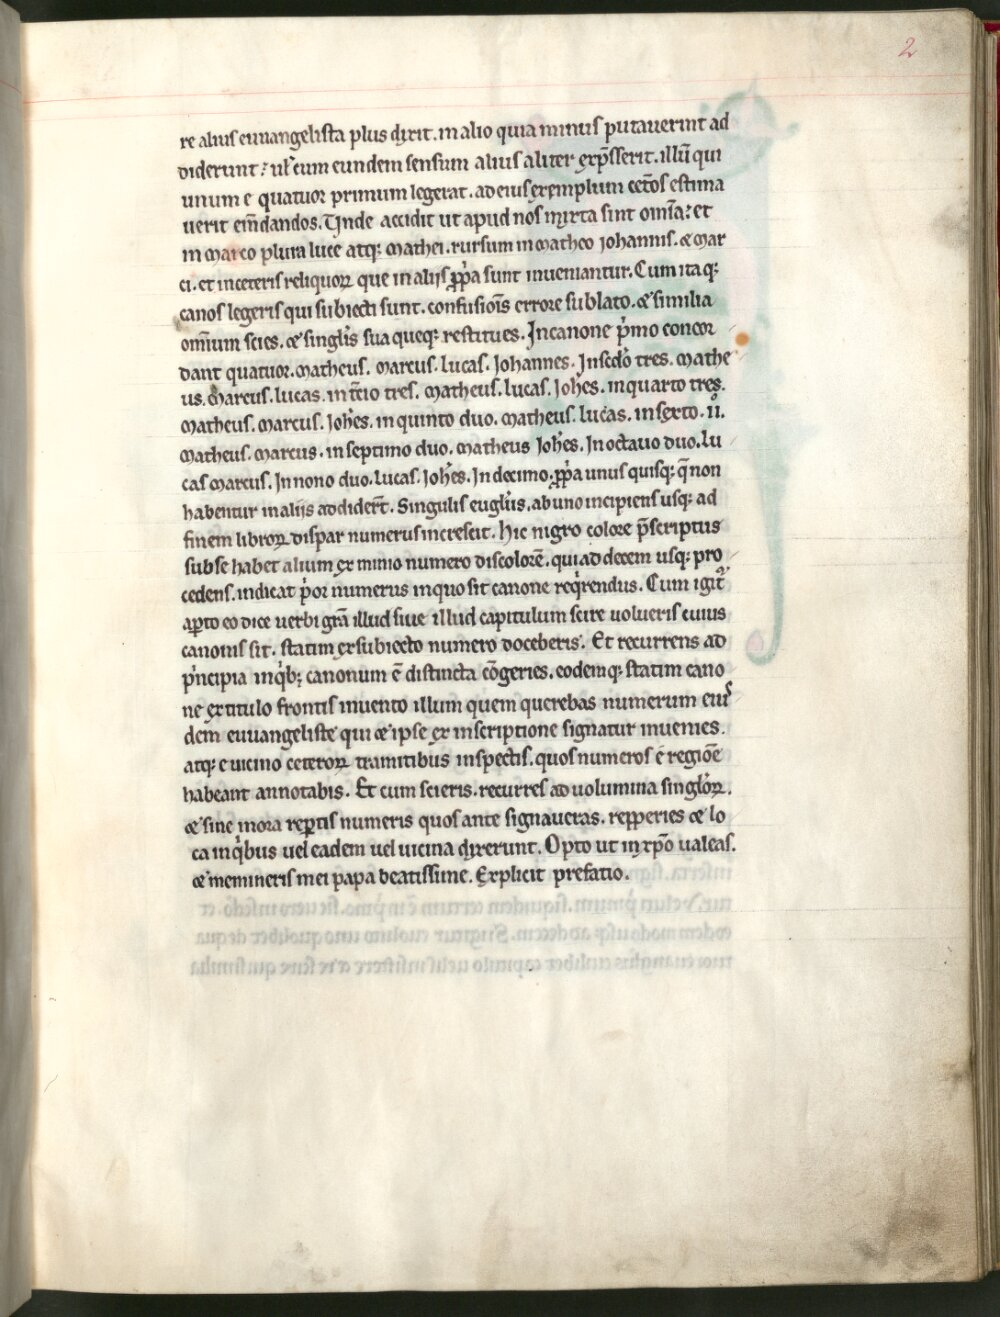 2
re alius euuangelista plus dixit. in alio quia minus putauerint ad
diderunt: ul̄ cum eundem sensum alius aliter exp̄sserit. illū qui
unum e quatuor primum legerat. ad eius exemplum cet̄os estima
uerit em̄dandos. Unde accidit ut apud nos mixta sint om̄ia: et
in marco plura luce atq; mathei. rursum in matheo iohannis. & mar
ci. et in ceteris reliquoꝝ que in alijs ꝓp̄a sunt inueniantur. Cum itaq;
canos legeris qui subiecti sunt. confusiōis errore sublato. & similia
om̄ium scies. & singl̄is sua queq; restitues. In canone p̄mo concor
dant quatuor. matheus. marcus. lucas. Johannes. In sc̄do tres. mathe
us. marcus. lucas. in t̄cio tres. matheus. lucas. Joh̄es. in quarto tres.
matheus. marcus. Joh̄es. in quinto duo. matheus. lucas. in sexto. ii.
matheus. marcus. in septimo duo. matheus Joh̄es. In octauo duo. lu
cas marcus. In nono duo. lucas. Joh̄es. In decimo. ꝓp̄a unus quisq; q̄ non
habentur in alijs addider̄t. Singulis eugl̄iis. ab uno incipiens usq; ad
finem libroꝝ dispar numerus increscit. Hic nigro colore p̄scriptus
sub se habet alium ex minio numero discolorē. qui ad decem usq; pro
cedens. indicat p̄or numerus in quo sit canone req̄rendus. Cum igit᷑
aꝑto codice uerbi grā illud siue illud capitulum scire uolueris cuius
canonis sit. statim ex subiecto numero doceberis. Et recurrens ad
p̄ncipia in q̄b; canonum ē distincta cōgeries. eodemq; statim cano
ne ex titulo frontis inuento illum quem querebas numerum eius
dem euuangeliste qui & ipse ex inscriptione signatur inuenies.
atq; e uicino ceteroꝝ tramitibus inspectis. quos numeros e regiōe
habeant annotabis. Et cum scieris. recurres ad uolumina singl̄oꝝ.
& sine mora reꝑtis numeris quos ante signaueras. repperies & lo
ca in q̄bus uel eadem uel uicina dixerunt. Opto ut in xp̄o ualeas.
& memineris mei papa beatissime. Explicit prefatio.